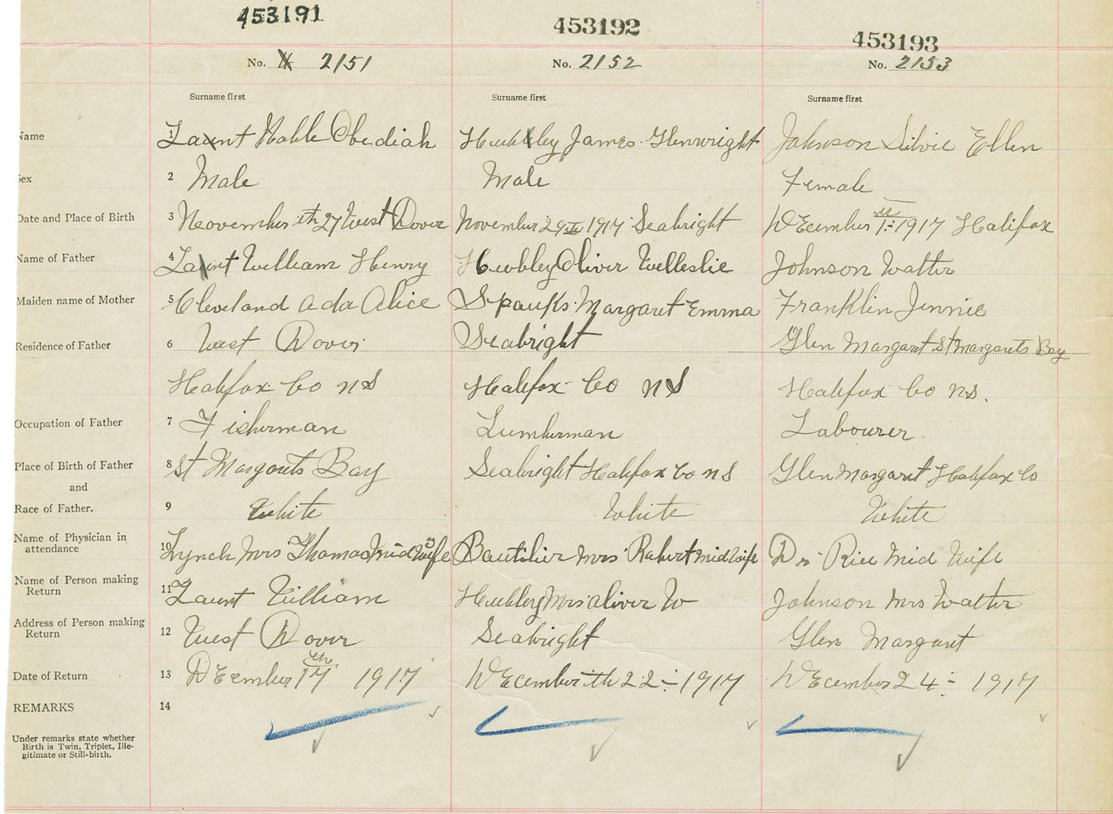 453191 453192 453193
No. 2151 No. 2152 No. 2153
Surname first Surname first Surname first
Name 1 Launt Noble Obediah Hubley James Glenwright Johnson Silvie Ellen
Sex 2 Male Male Female
Date and Place of Birth 3 Noovember th 27 West Dover November 29th 1917 Seabright DEcember 1st 1917 Halifax
Name of Father 4 Launt William Henry Hubbley Oliver Welleslie Johnson Walter
Maiden name of Mother 5 Cleveland Ada Alice Margaret Emma Franklin Jennie
Residence of Father 6 West Dover Seabright Glen Margaret St Margarets Bay
Halifax Co NS Halifax Co NS Halifax Co NS.
Occupation of Father 7 Fisherman Lumberman Labourer
Place of Birth of Father 8 St Margarets Bay Seabright Halifax Co NS Glen Margaret Halifax Co
and
Race of Father. 9 White White White
Name of Physician in
attendance 10 Lynch Mrs Thomas Mid Wife Boutilier Mrs Robert Midwife Dr Rice Mid Wife
Name of Person making
Return 11 Launt William Hubbley Mrs Oliver W Johnson Mrs Walter
Address of Person making
Return 12 West Dover Seabright Glen Margaret
Date of Return 13 DEcember 17th 1917 DEcember th 22 - 1917 DEcember 24 - 1917
REMARKS 14
Under remarks state whether
Birth is Twin, Triplet, Ille-
gitimate or Still-birth.